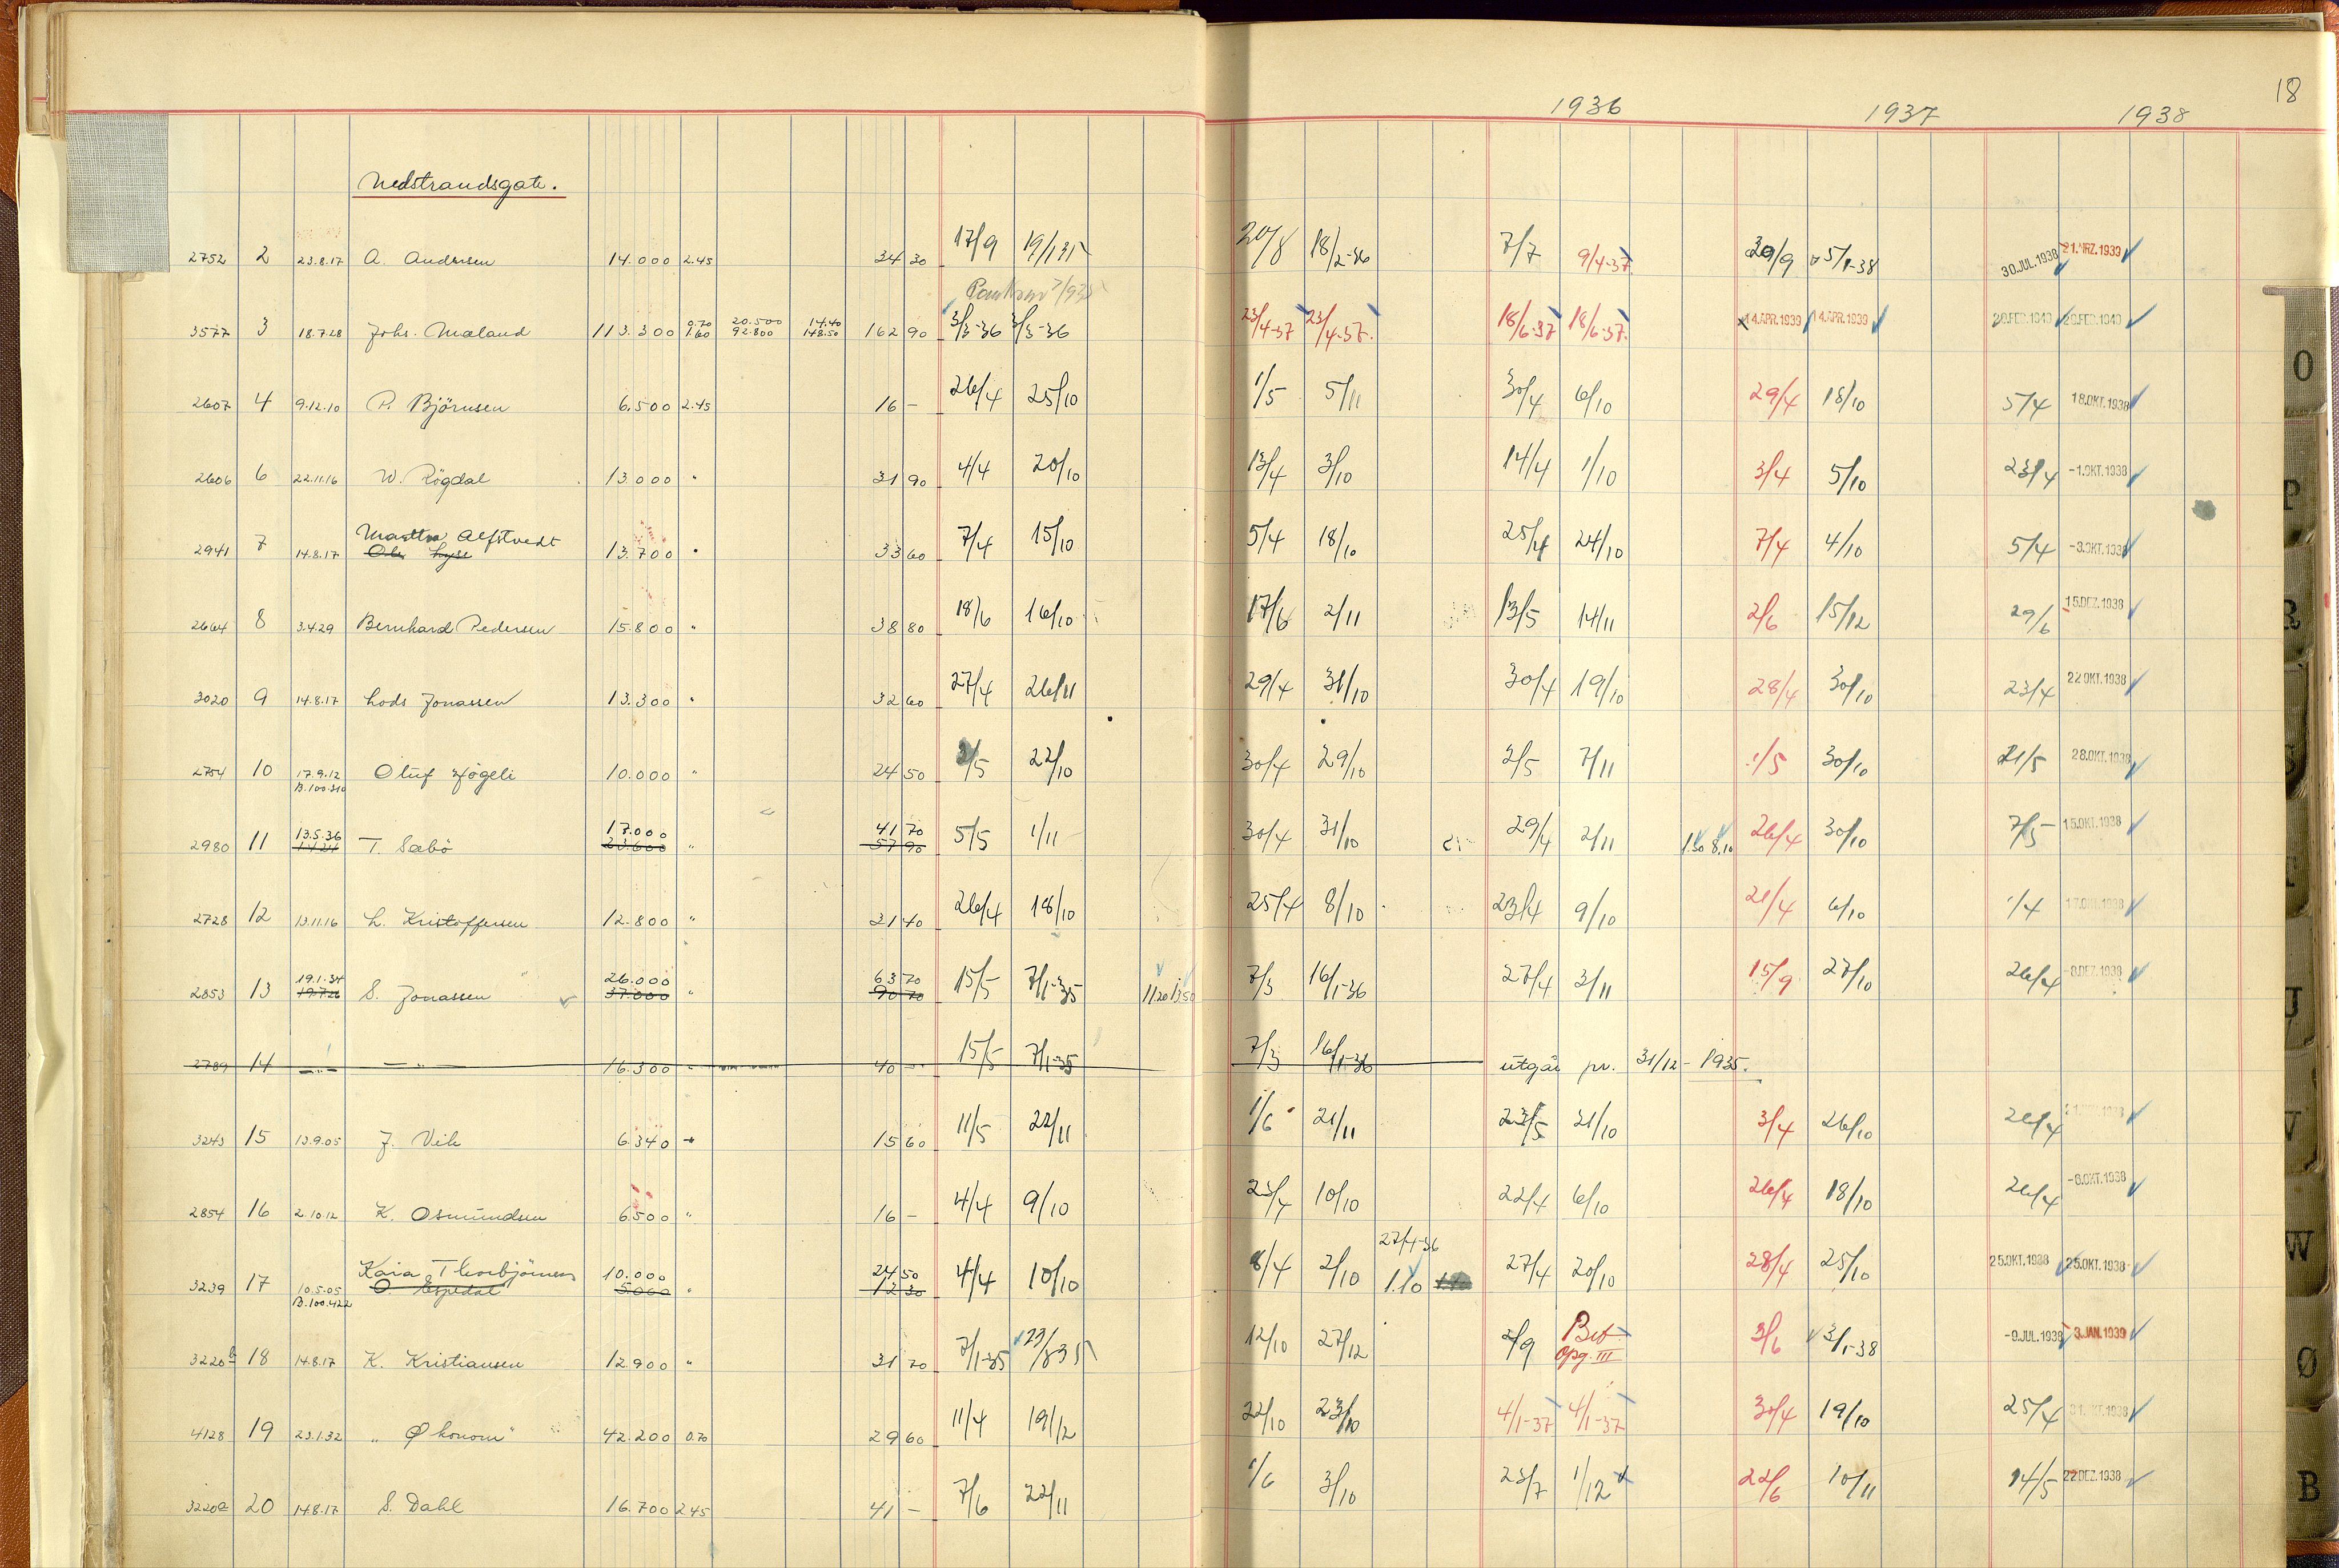 18
1936 1937 1938
Nedstrandsgate.
2752 2 23.8.17 A. Andersen 14.000 2.45 34 30 17/9 19/1 35 20/8 18/2-36 7/7 9/4-37 20/9 5/1-38 30.JUL.1938 21.MRZ.1939
3577 3 18.7.28 Johs. Maland 113.300 0.70 1.60 20.500 92.800 14.40 148.50 162 90 3/3-36 3/3-36 23/4-37 23/4-37 18/6-37 18/6-37 14.APR.1939 14.APR.1939 20.FEB.1940 20.FEB.1940
2607 4 9.12.10 P. Björnsen 6.500 2.45 16 - 26/4 25/10 1/5 5/11 30/4 6/10 29/4 18/10 5/4 18.OKT.1938
2606 6 22.11.16 W. Rögdal 13.000 " 31 90 4/4 20/10 13/4 3/10 14/4 1/10 3/4 5/10 23/4 -1.OKT.1938
2941 7 14.8.17 Alfstvedt 13.700 " 33 60 7/4 15/10 5/4 18/10 25/4 24/10 7/4 4/10 5/4 -3.OKT.1938
Ole Lyse
2664 8 3.4.29 Bernhard Pedersen 15.800 " 38 80 18/6 16/10 17/6 2/11 13/5 14/11 2/6 15/12 29/6 15.DEZ.1938
3020 9 14.8.17 Lods Jonassen 13.300 " 32 60 27/4 26/11 29/4 31/10 30/4 19/10 28/4 30/10 23/4 22.OKT.1938
2754 10 17.9.12 Oluf 10.000 " 24 50 2/5 22/10 30/4 29/10 2/5 7/11 1/5 30/10 21/5 28.OKT.1938
B.100.310
13.5.36 17.000 41 70
2980 11 14.24 T. Sæbö 23.600 " 57 90 5/5 1/11 30/4 31/10 29/4 2/11 1.30 8.10 26/4 30/10 7/5 15.OKT.1938
2728 12 13.11.16 L. Kristoffersen 12.800 " 31 40 26/4 18/10 25/4 8/10 23/4 9/10 21/4 6/10 1/4 17.OKT.1938
19.1.34 26.000 63 70
2853 13 19.7.26 S. Jonassen 37.000 " 90 70 15/5 7/1-35 11 20 13.50 7/3 16/1-36 27/4 3/11 15/9 27/10 26/4 -8.DEZ.1938
2789 14 -"- -"- 16.300 " 40 - 15/5 7/1-35 7/3 16/1-36 utgår pr. 31/12-1935.
3243 15 13.9.05 J. Vik 6.340 " 15 60 11/5 22/11 1/6 21/11 23/5 31/10 3/4 26/10 26/4
2854 16 2.10.12 K. Osmundsen 6.500 " 16 - 4/4 9/10 23/4 10/10 22/4 6/10 26/4 18/10 26/4 -6.OKT.1938
27/4-36
Kaia Thorbjörnsen 10.000 24 50
3239 17 10.5.05 O Espedal 5.000 " 12 30 4/4 10/10 8/4 2/10 1.10 27/4 20/10 28/4 25/10 25.OKT.1938 25.OKT.1938
B.100.422
3220b 18 14.8.17 K. Kristiansen 12.900 " 31 70 7/1-35 23/8 35 12/10 27/12 2/9 Bet. opg. III 3/6 3/1-38 -9.JUL.1938 3.JAN.1939
4128 19 23.1.32 "Økonom" 42.200 0.70 29 60 11/4 19/12 22/10 23/10 4/1-37 4/1-37 30/4 19/10 25/4
3220a 20 14.8.17 S. Dahl 16.700 2.45 41 - 7/6 22/11 1/6 3/10 23/7 1/12 22/6 10/11 14/5 22.DEZ.1938
O
P
R
S
U
V
W
Ø
B